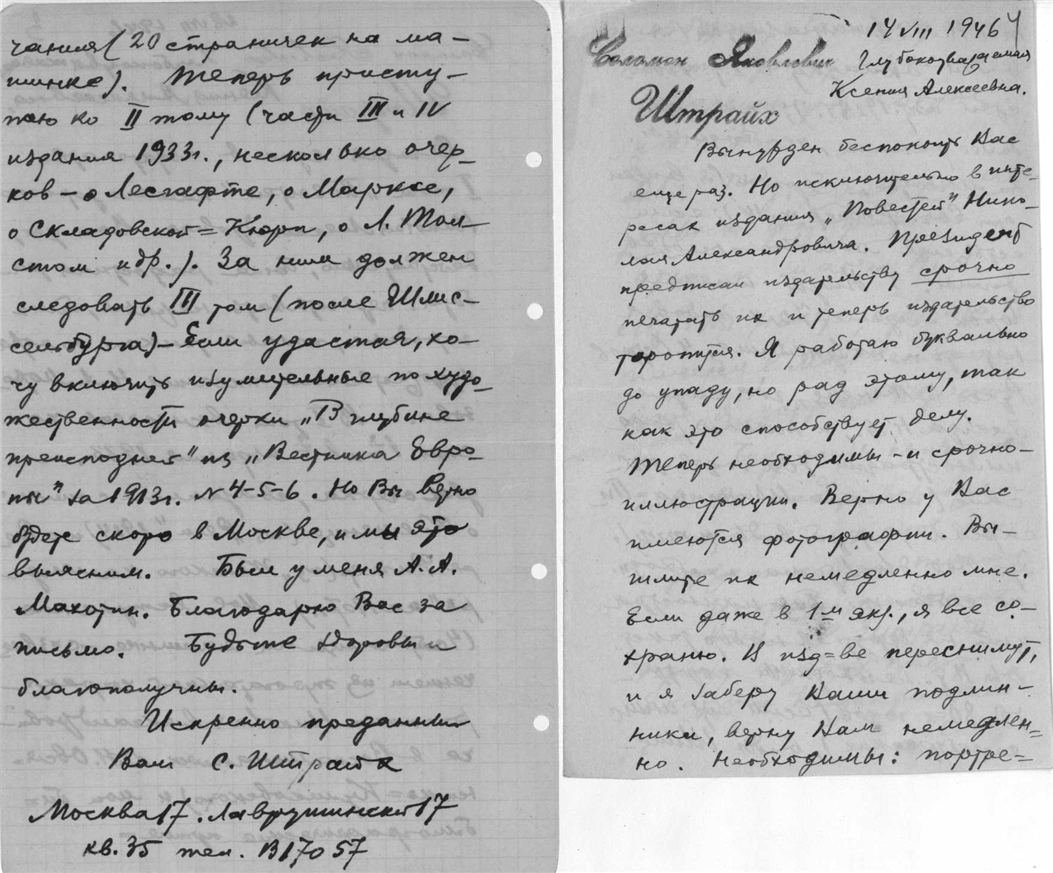 чания (20 страничек на ма-
шинке). Теперь присту-
паю ко II тому (части III и IV
издания 1933г., несколько очер-
ков – о Лесгафте, о Марксе,
о Складовской=Кюри, о Л. Тол-
стом и др.). За ним должен
следовать III том (после Шлис-
сельбурга) – Если удастся, хо-
чу включить изумительные по худо-
жественности очерки „В глубине
преисподней" из „Вестника Евро-
пы" за 1913г. № 4-5-6. Но Вы верно
будете скоро в Москве, и мы это
выясним. Был у меня А.А.
Макотин. Благодарю Вас за
письмо. Будьте здоровы и
благополучны.
Искренно преданный
Вам С. Штрайх
Москва 17. Лаврушинский 17
кв. 35 тел. В 17057
14 VIII 1946
Соломон Яковлевич
Штрайх
Глубокоуважаемая
Ксения Алексеевна.
Вынужден беспокоить Вас
еще раз. Но исключительно в инте-
ресах издания „Повестей" Нико-
лая Александровича. Президент
предписал издательству срочно
печатать их и теперь издательство
торопится. Я работаю буквально
до упаду, но рад этому, так
как это способствует делу.
Теперь необходимы – и срочно –
иллюстрации. Верно у Вас
имеются фотографии. Вы-
шлите их немедленно мне.
Если даже в 1м экз., я все со-
храню. В изд=ве переснимут,
и я заберу Ваши подлин-
ники, верну Вам немедлен=
но. Необходимы: портре=